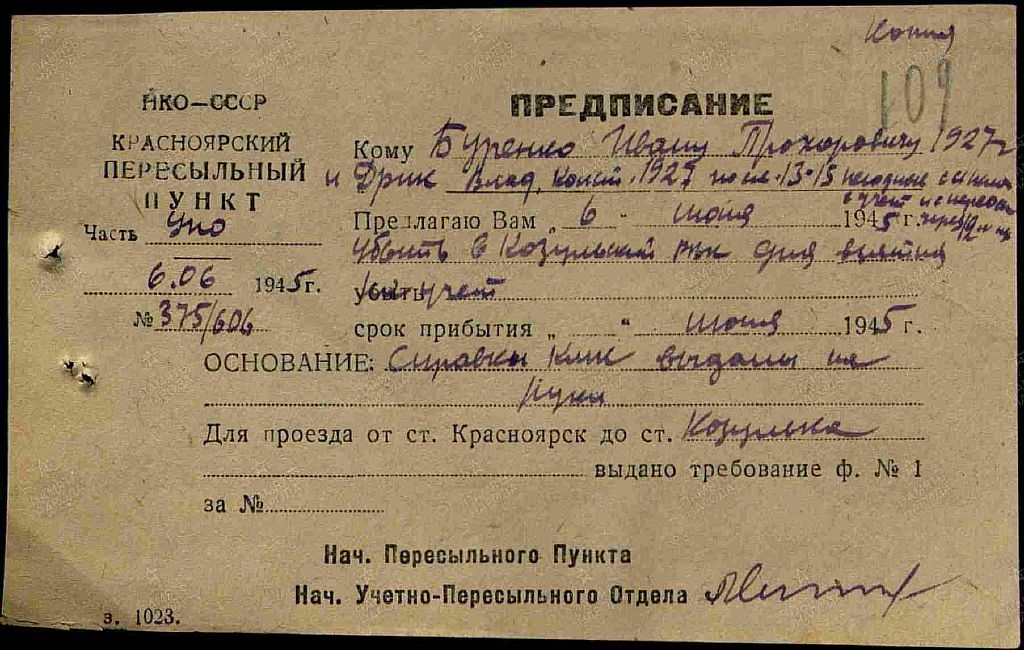 Копия
109
НКО—СССР
КРАСНОЯРСКИЙ
ПЕРЕСЫЛЬНЫЙ
ПУНКТ
Часть Упо
6.06 1945г.
№ 375/606
ПРЕДПИСАНИЕ
Кому Буренко Ивану Прохоровичу 1927г
и Дрик Влад. Конст. 1927
Предлагаю Вам „ 6 " июня 1945 г.
убыть в Козульский рвк для взятия
убыть на учет
срок прибытия „ " июня 1945 г.
ОСНОВАНИЕ: Справки выданы на
руки
Для проезда от ст. Красноярск до ст. Козулька
выдано требование ф. № 1
за №
Нач. Пересыльного Пункта
Нач. Учетно-Пересыльного Отдела
з. 1023.